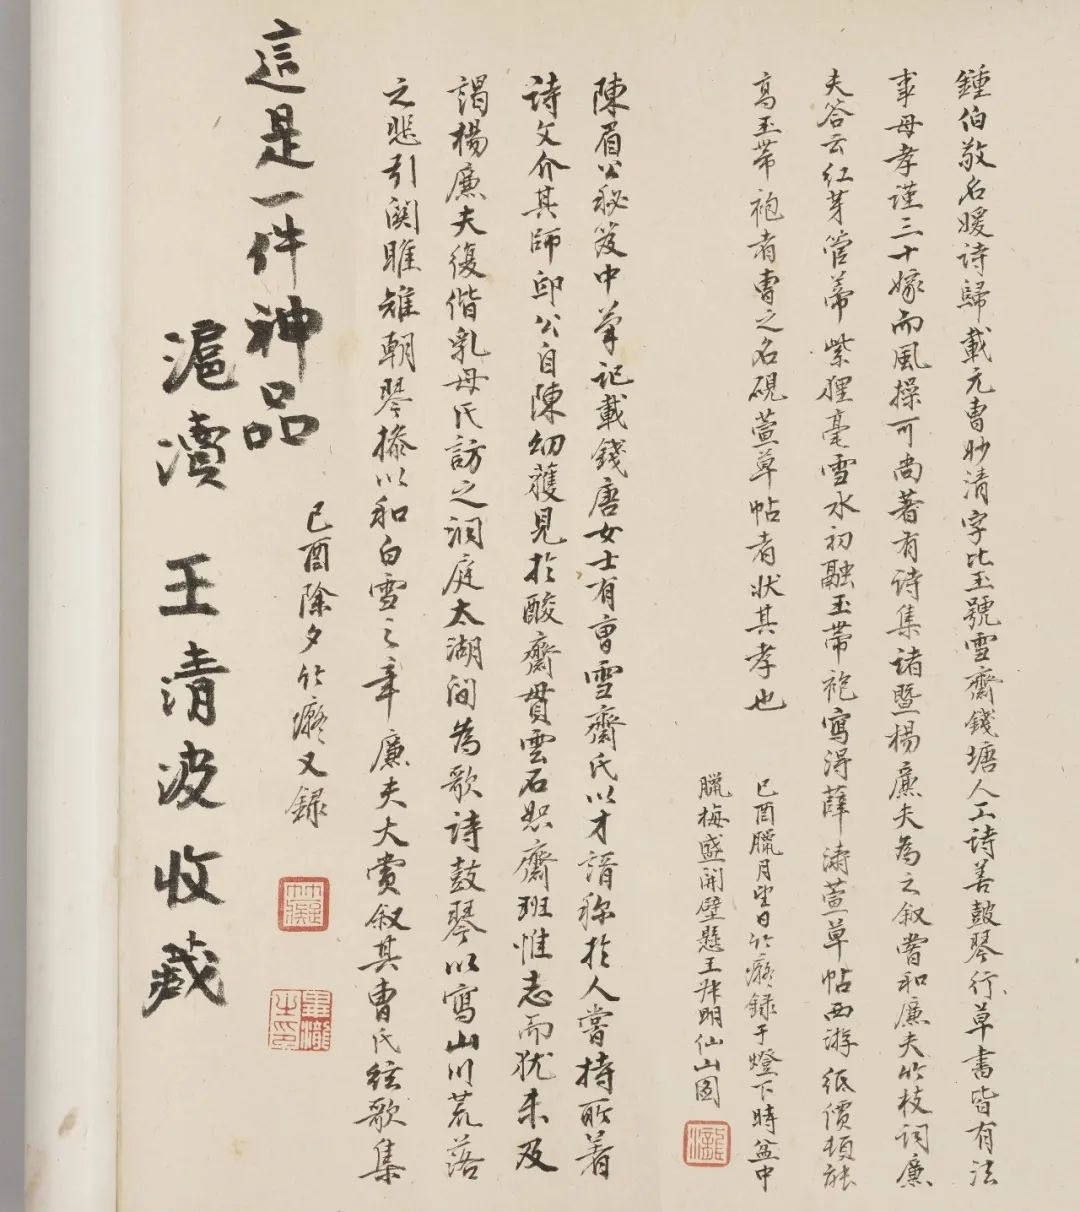 鍾伯敬名媛詩歸載元曹妙清字比玉號雪齋錢塘人工詩善鼓琴行草書皆有法
事母孝謹三十嫁而風操可尚著有詩集諸暨楊廉夫為之叙嘗和廉夫竹枝詞廉
夫答云紅芽管蒂紫狸毫雪水初融玉帶袍寫得薛濤萱草帖西湖紙價頓能
高玉帶袍者曹之名硯萱草帖者狀其孝也
己酉臘月望日竹癡錄于燈下時盆中
臘梅盛開壁懸王叔明仙山圖
陳眉公秘笈中筆記載錢唐女士有曹雪齋氏以才諝称於人嘗持所著
詩文介其師邱公自陳幼獲見於酸齋貫雲石恕齋班惟志而犹未及
謁楊廉夫復偕乳母氏訪之洞庭太湖間為歌詩鼓琴以寫山川荒落
之悲引関雎雉朝琴操以和白雪之章廉夫大賞叙其曹氏絃歌集
己酉除夕竹癡又録
這是一件神品
滬瀆 王清波收藏